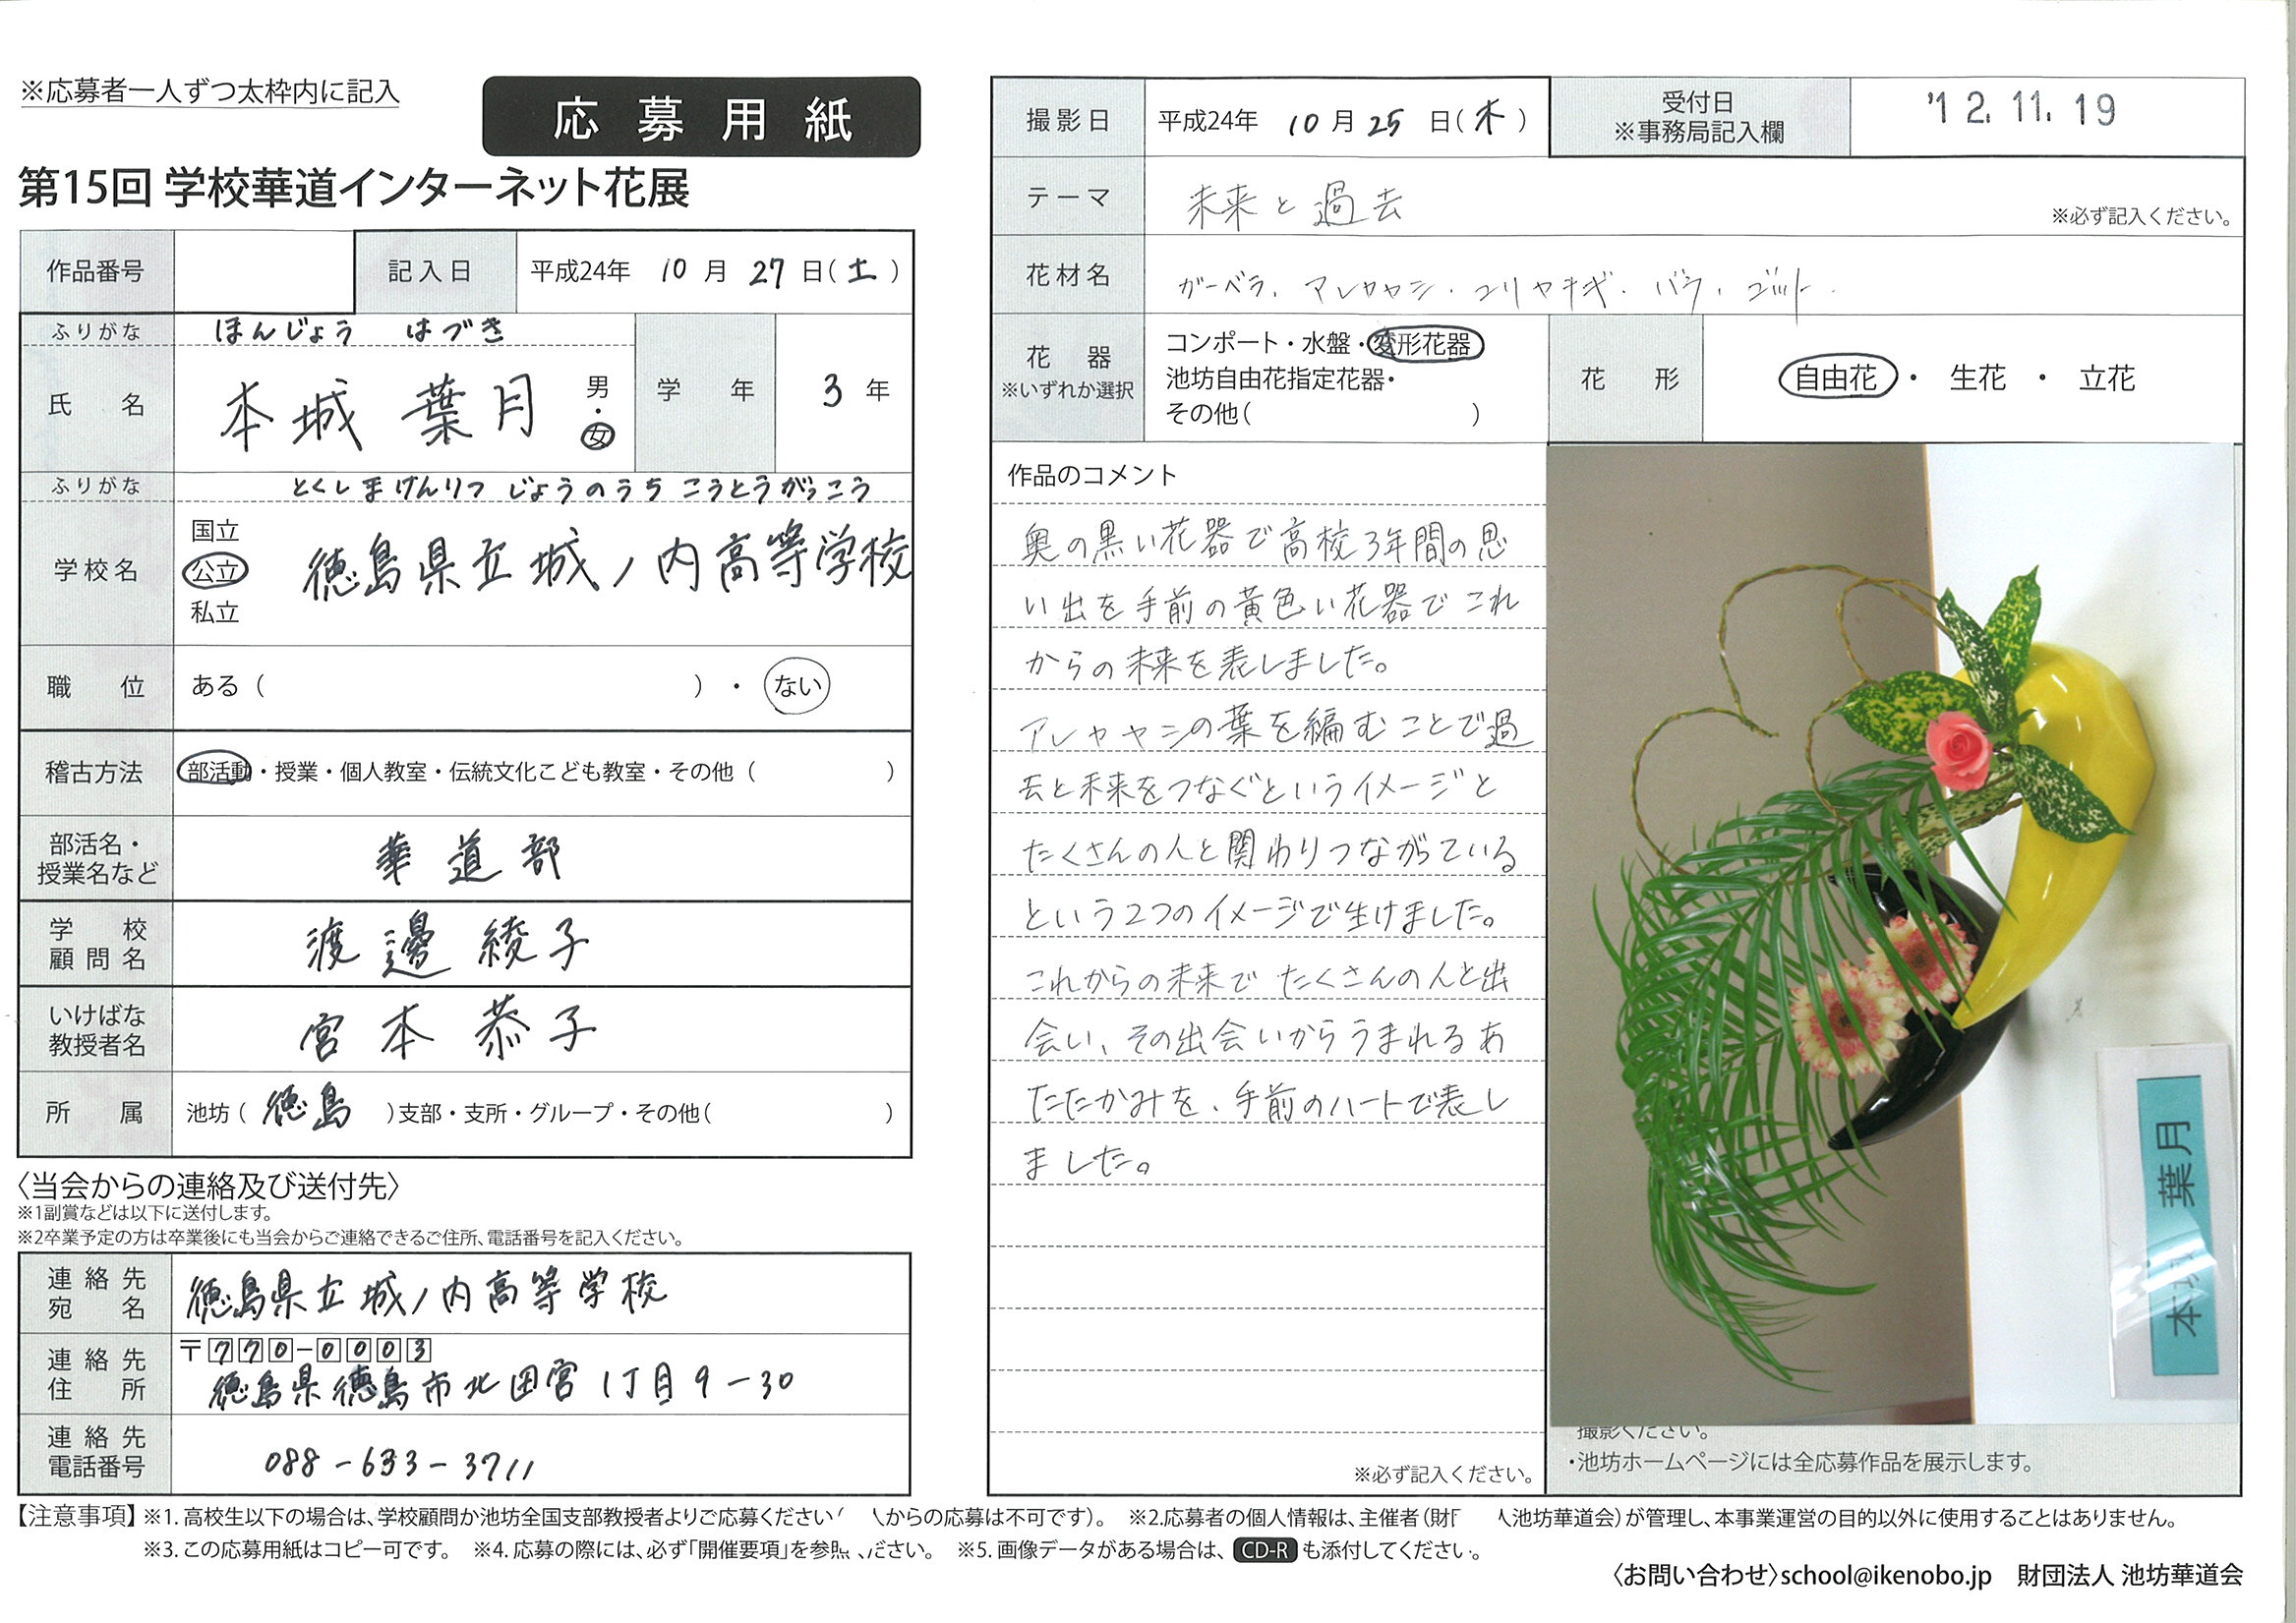 ※応募者一人ずつ太枠内に記入
応募用紙
第15回 学校華道インターネット花展
作品番号
記入日 平成24年 10月 27日(土)
ふりがな ほんじょう はづき
氏名 本城 葉月 男・女
学年 3年
ふりがな とくしまけんりつ じょうのうち こうとうがっこう
学校名 国立 公立 私立 徳島県立城ノ内高等学校
職位 ある( )・ない
稽古方法 部活動・授業・個人教室・伝統文化こども教室・その他( )
部活名・授業名など 華道部
学校顧問名 渡邊綾子
いけばな教授者名 宮本恭子
所属 池坊(徳島)支部・支所・グループ・その他( )
〈当会からの連絡及び送付先〉
※1副賞などは以下に送付します。
※2卒業予定の方は卒業後にも当会からご連絡できるご住所、電話番号を記入ください。
連絡先宛名 徳島県立城ノ内高等学校
連絡先住所 〒770-0003
徳島県徳島市北田宮1丁目9-30
連絡先電話番号 088-633-3711
撮影日 平成24年 10月 25日(木)
受付日 ※事務局記入欄 '12.11.19
テーマ 未来と過去 ※必ず記入ください。
花材名 ガーベラ、アレカヤシ・コリヤナギ・バラ・ゴット
花器 ※いずれか選択
コンポート・水盤・変形花器
池坊自由花指定花器・
その他( )
花形 自由花・生花・立花
作品のコメント
奥の黒い花器で高校3年間の思
い出を手前の黄色い花器でこれ
からの未来を表しました。
アレカヤシの葉を編むことで過
去と未来をつなぐというイメージと
たくさんの人と関わりつながっている
という2つのイメージで生けました。
これからの未来でたくさんの人と出
会い、その出会いからうまれるあ
たたかみを、手前のハートで表し
ました。
※必ず記入ください。
本城 葉月
撮影ください。
・池坊ホームページには全応募作品を展示します。
【注意事項】※1.高校生以下の場合は、学校顧問か池坊全国支部教授者よりご応募ください( 人からの応募は不可です)。 ※2.応募者の個人情報は、主催者(財 人池坊華道会)が管理し、本事業運営の目的以外に使用することはありません。
※3.この応募用紙はコピー可です。 ※4.応募の際には、必ず「開催要項」を参照ください。 ※5.画像データがある場合は、CD-Rも添付してください。
〈お問い合わせ〉school@ikenobo.jp 財団法人 池坊華道会